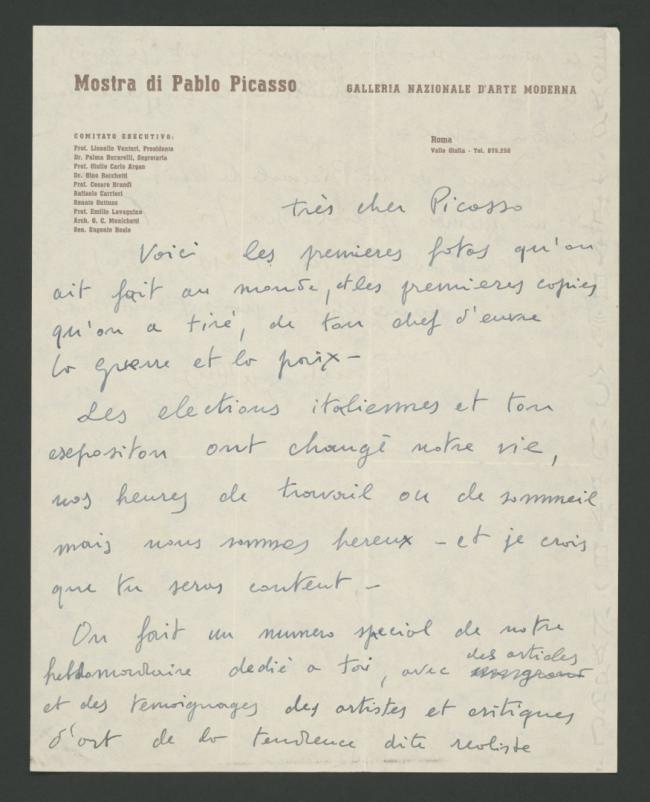 Mostra di Pablo Picasso
GALLERIA NAZIONALE D'ARTE MODERNA
COMITATO ESECUTIVO:
Prof. Lionello Venturi, Presidente
Dr. Palma Bucarelli, Segretaria
Prof. Giulio Carlo Argan
Dr. Gino Bacchetti
Prof. Cesare Brandi
Raffaele Carrieri
Renato Guttuso
Prof. Emilio Lavagnino
Arch. G. C. Menichetti
Sen. Eugenio Reale
Roma
Valle Giulia - Tel. 875.250
très cher Picasso
Voici les premieres fotos qu'on
ait fait au monde, et les premieres copies
qu'on a tiré, de ton chef d'euvre
la guerre et la paix -
Les elections italiennes et ton
exposition ont changé notre vie,
nos heures de travail ou de sommeil
mais nous sommes hereux - et je crois
que tu seras content -
On fait un numero special de notre
hebdomordaire dedié a toi, avec des articles
et des temoignages des artistes et critiques
d'art de la tendence dite realiste